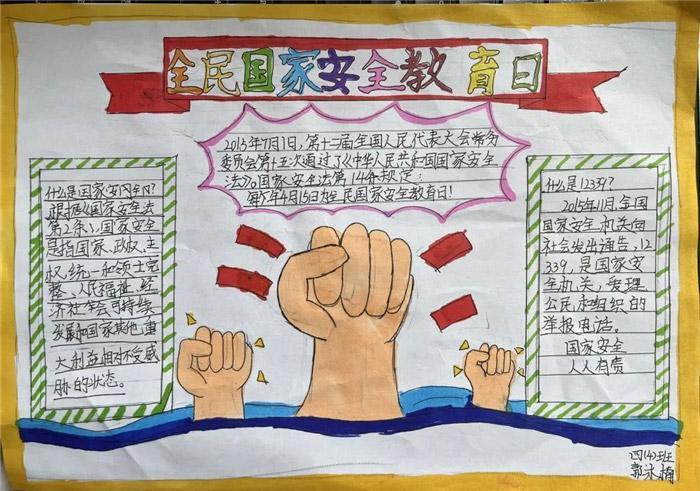 全民国家安全教育日
2015年7月1日,第十二届全国人民代表大会常务
委员会第十五次通过了《中华人民共和国国家安全
法》。国家安全法第14条规定:
每年4月15日为全民国家安全教育日!
什么是国家安全?
根据《国家安全法
第2条》,国家安全
是指国家、政权、主
权、统一和领土完
整、人民福祉、经
济社会可持续
发展和国家其他重
大利益相对不受威
胁的状态。
什么是12339?
2015年11月,全国
国家安全机关向
社会发出通告,12
339,是国家安
全机关,受理
公民和组织的
举报电话。
国家安全
人人有责
四(4)班